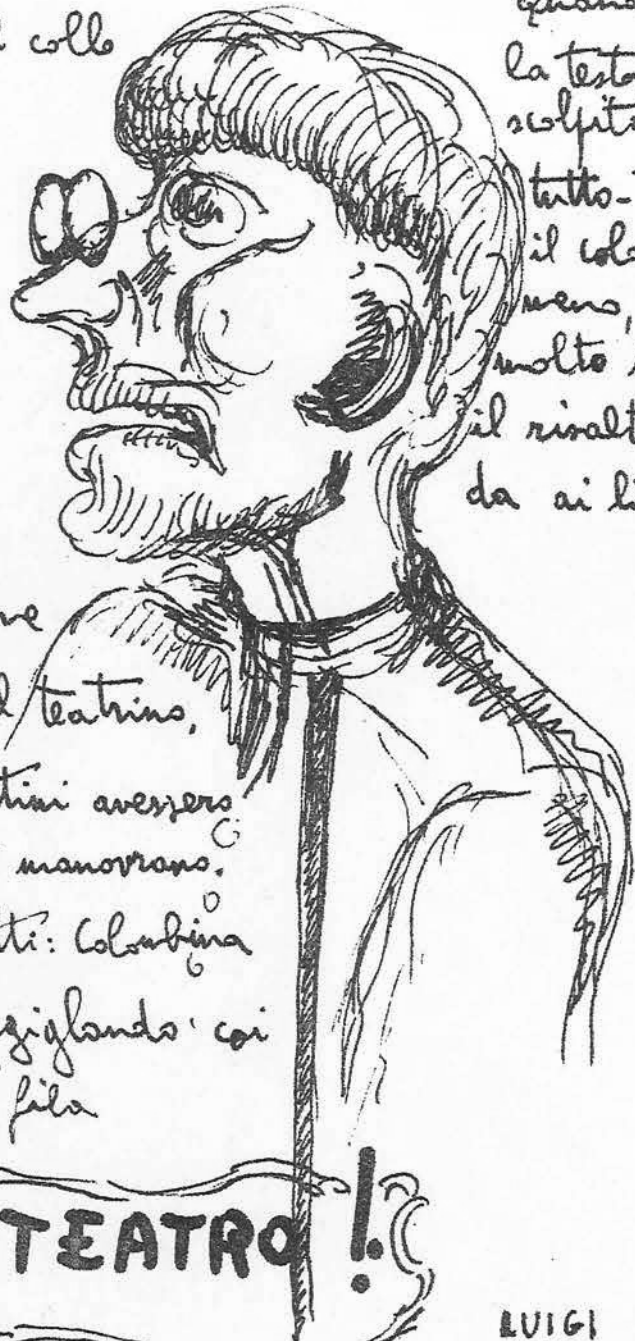 colle
la testa
scolpita
tutto
il colo
meno,
molto
il risalt
da ai li
ve
l teatrino,
tini avessero
manovrano.
ti: Colombina
ziglando coi
fila
TEATRO!
LUIGI